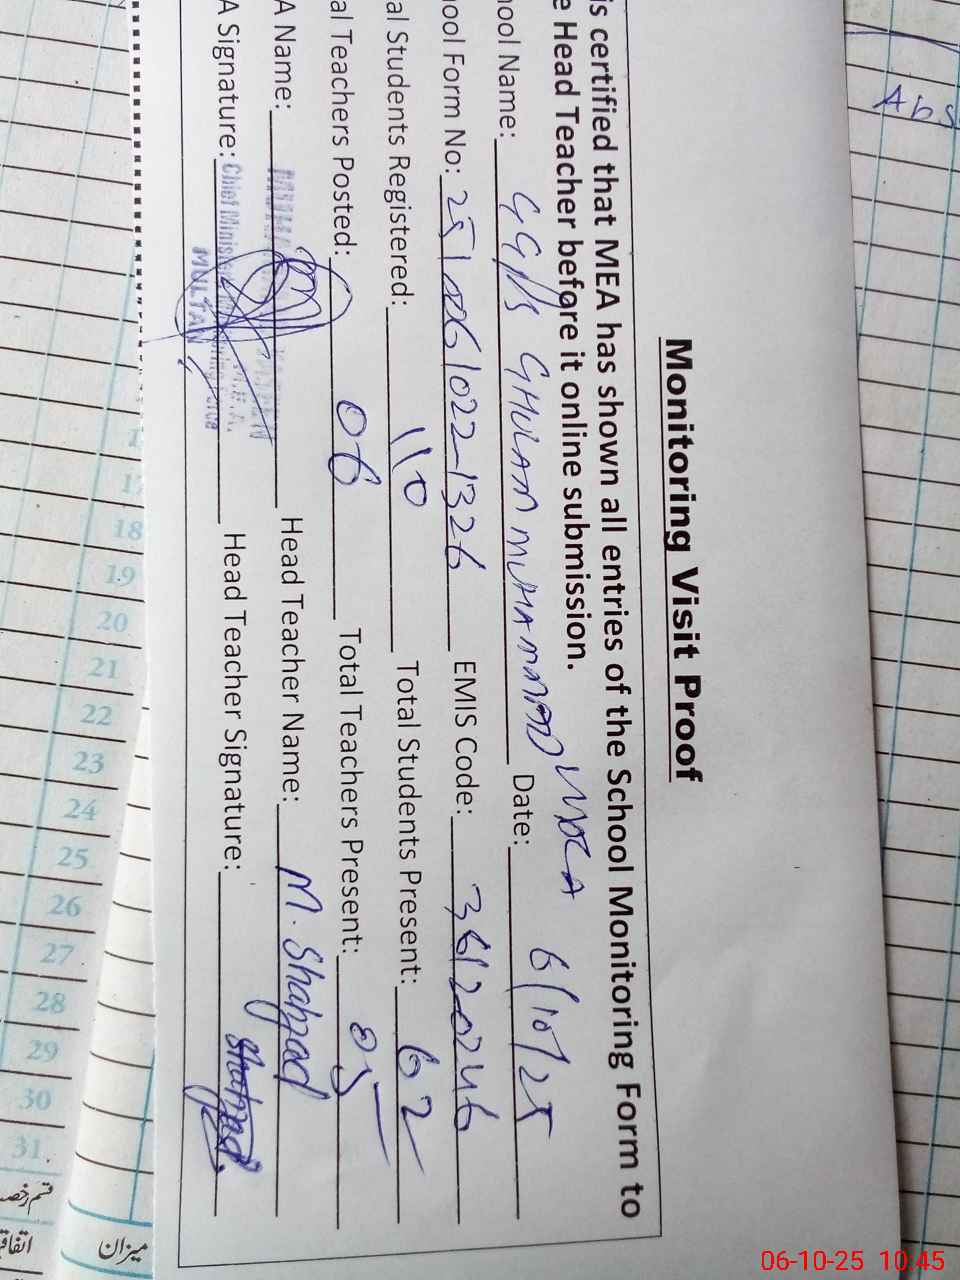 Monitoring Visit Proof
is certified that MEA has shown all entries of the School Monitoring Form to
e Head Teacher before it online submission.
hool Name: GG/S GHULAM MUHAMMAD Date: 6/10/25
hool Form No: 2510061022-1326 EMIS Code: 36120246
al Students Registered: 110 Total Students Present: 62
al Teachers Posted: 06 Total Teachers Present: 05
A Name: Head Teacher Name: M. Shahzad
A Signature: Head Teacher Signature: Shahzad
Chief Minis
MULTAN
Abs
17
18
19
20
21
22
23
24
25
26
27
28
29
30
31
میزان
06-10-25 10:45